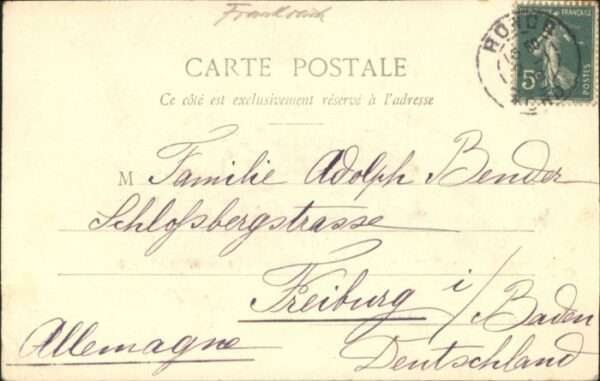 Frankreich
RÉPUBLIQUE FRANÇAISE
5c
POSTES
CARTE POSTALE
Ce côté est exclusivement réservé à l'adresse
M Familie Adolph Bender
Schloßbergstrasse
Freiburg i/Baden
Allemagne Deutschland